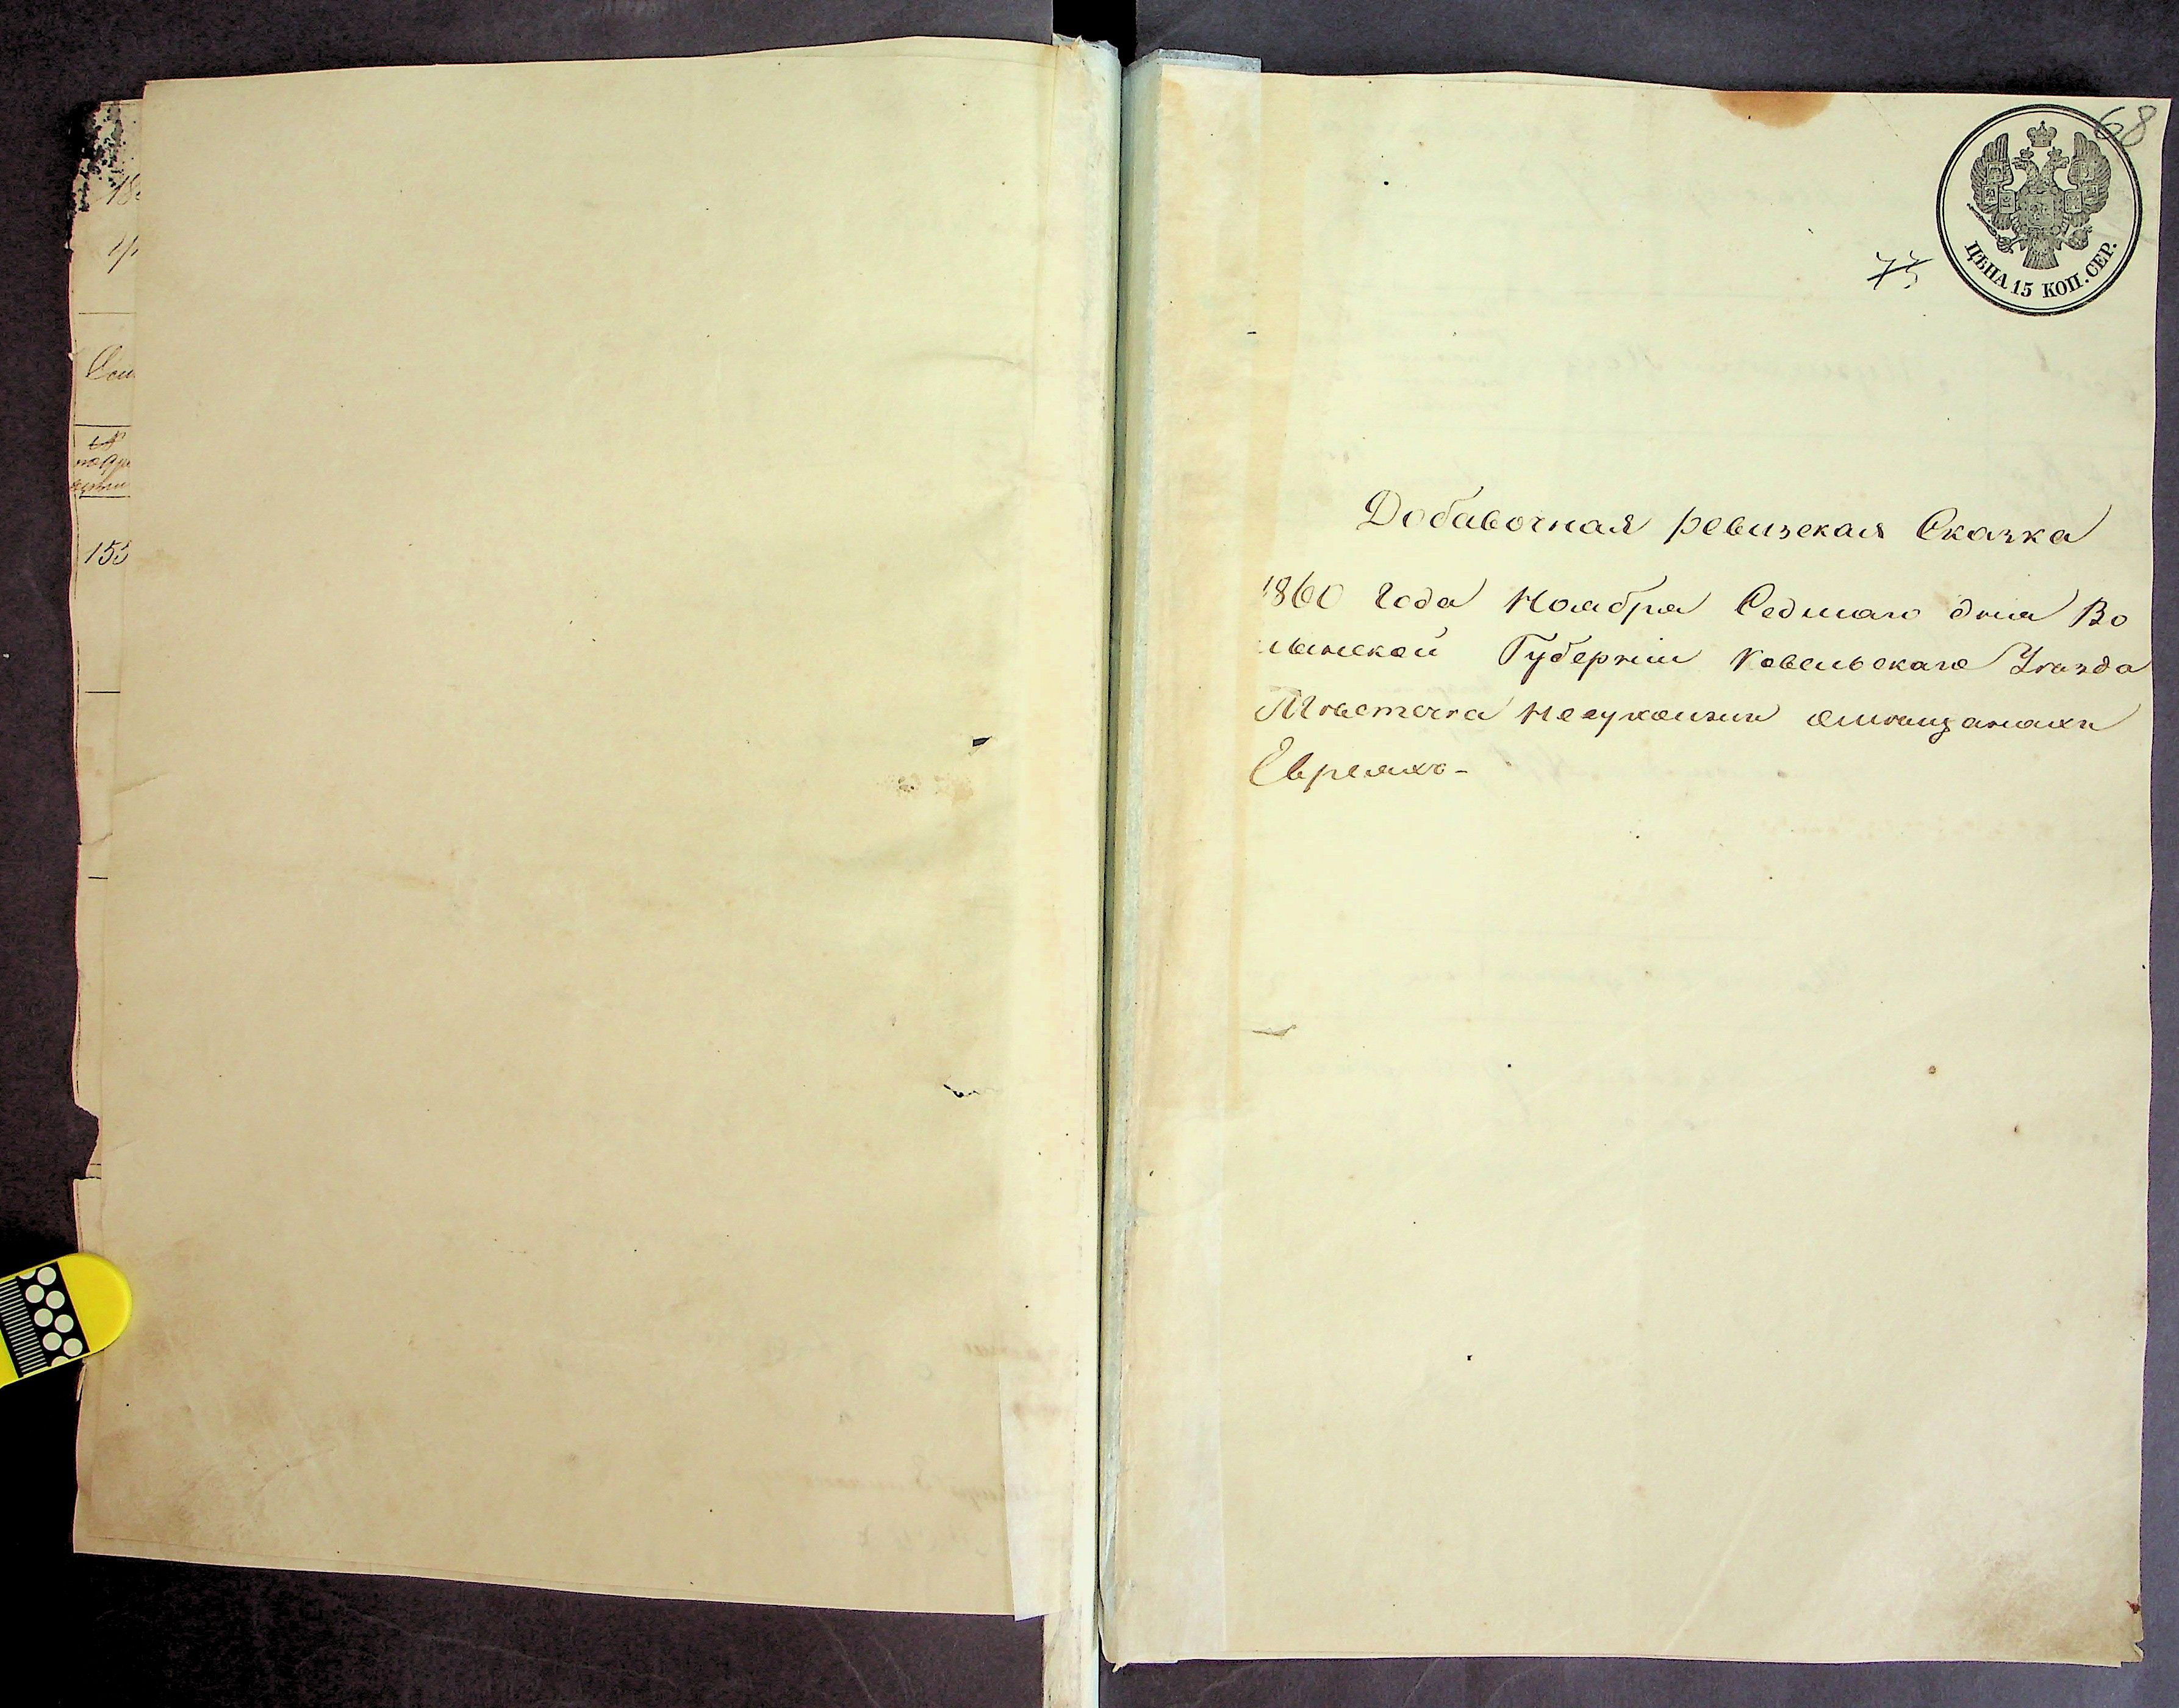 68
ЦѢНА 15 КОП. СЕР.
75
Добавочная ревизская Сказка
1860 Года Ноября Седмаго дня Во
лынской Губерніи Ковельскаго Уѣзда
Мѣстечка Несухоижи омѣщанахъ
Евреяхъ-
153